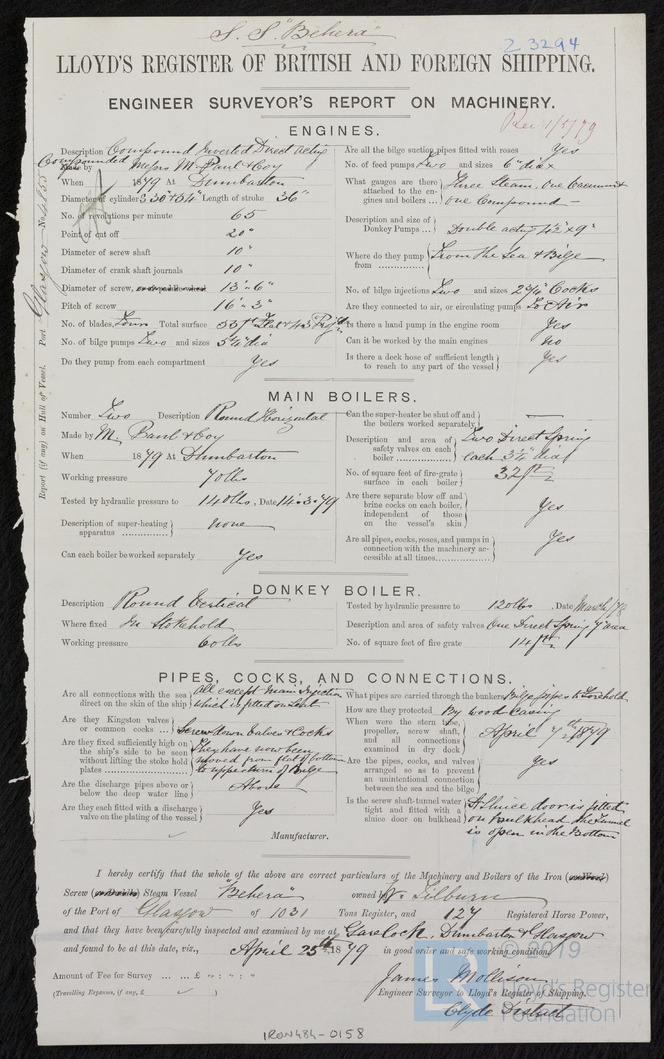 S. S. "Behera"
23294
LLOYD'S REGISTER OF BRITISH AND FOREIGN SHIPPING.
ENGINEER SURVEYOR'S REPORT ON MACHINERY.
Rec 1/5/79
Port Glasgow No.
Report (if any) on Hull of Vessel.
ENGINES.
Description Compound Inverted Direct acting
Compounded by Messrs M. Paul & Coy
When 1879 At Dumbarton
Diameter of cylinders 30" & 54" Length of stroke 36"
No. of revolutions per minute 65
Point of cut off 20"
Diameter of screw shaft 10"
Diameter of crank shaft journals 10"
Diameter of screw, 13'-6"
Pitch of screw 16'-3"
No. of blades, Four Total surface 53 ft Flat & 43 Proj.
No. of bilge pumps Two and sizes dia
Do they pump from each compartment Yes
Are all the bilge suction pipes fitted with roses Yes
No. of feed pumps Two and sizes 6" dia
What gauges are there attached to the engines and boilers ... Three Steam, One Vacuum & one Compound -
Description and size of Donkey Pumps ... Double acting x 9"
Where do they pump from From the Sea & Bilge
No. of bilge injections Two and sizes Cocks
Are they connected to air, or circulating pumps To Air
Is there a hand pump in the engine room Yes
Can it be worked by the main engines No
Is there a deck hose of sufficient length to reach to any part of the vessel Yes
MAIN BOILERS.
Number Two Description Round Horizontal
Made by M. Paul & Coy
When 1879 At Dumbarton
Working pressure 70 lbs
Tested by hydraulic pressure to 140 lbs, Date 14.3.79
Description of super-heating apparatus none
Can each boiler be worked separately Yes
Can the super-heater be shut off and the boilers worked separately
Description and area of safety valves on each boiler Two Direct Spring each dia
No. of square feet of fire-grate surface in each boiler 32 ft
Are there separate blow off and brine cocks on each boiler, independent of those on the vessel's skin Yes
Are all pipes, cocks, roses, and pumps in connection with the machinery accessible at all times Yes
DONKEY BOILER.
Description Round Vertical
Where fixed In Stokehold
Working pressure 60 lbs
Tested by hydraulic pressure to 120 lbs. Date March/78
Description and area of safety valves One Direct Spring 7" area
No. of square feet of fire grate 14 ft
PIPES, COCKS, AND CONNECTIONS.
Are all connections with the sea direct on the skin of the ship All except Main Injection which is fitted on
Are they Kingston valves or common cocks ... Screwdown Valves & Cocks
Are they fixed sufficiently high on the ship's side to be seen without lifting the stoke hold plates They have now been moved from flat of bottom to upper turn of Bilge
Are the discharge pipes above or below the deep water line Above
Are they each fitted with a discharge valve on the plating of the vessel Yes
What pipes are carried through the bunkers Bilge pipes to Forehold
How are they protected By Wood Casing
When were the stern tube, propeller, screw shaft, and all connections examined in dry dock April 7th 1879
Are the pipes, cocks, and valves arranged so as to prevent an unintentional connection between the sea and the bilge Yes
Is the screw shaft-tunnel water tight and fitted with a sluice door on bulkhead A sluice door is fitted on bulkhead the Tunnel is open in the Bottom
Manufacturer.
I hereby certify that the whole of the above are correct particulars of the Machinery and Boilers of the Iron
Screw Steam Vessel "Behera" owned by W. Tilburn
of the Port of Glasgow of 1031 Tons Register, and 127 Registered Horse Power,
and that they have been carefully inspected and examined by me at Gareloch, Dumbarton & Glasgow
and found to be at this date, viz., April 25th, 1879 in good order and safe working condition
James Mollison
Engineer Surveyor to Lloyd's Register of Shipping.
Clyde District
Amount of Fee for Survey ... ... £ " : " : "
(Travelling Expenses, if any, £ )
© 2019
Lloyd's Register
Foundation
IRON484-0158